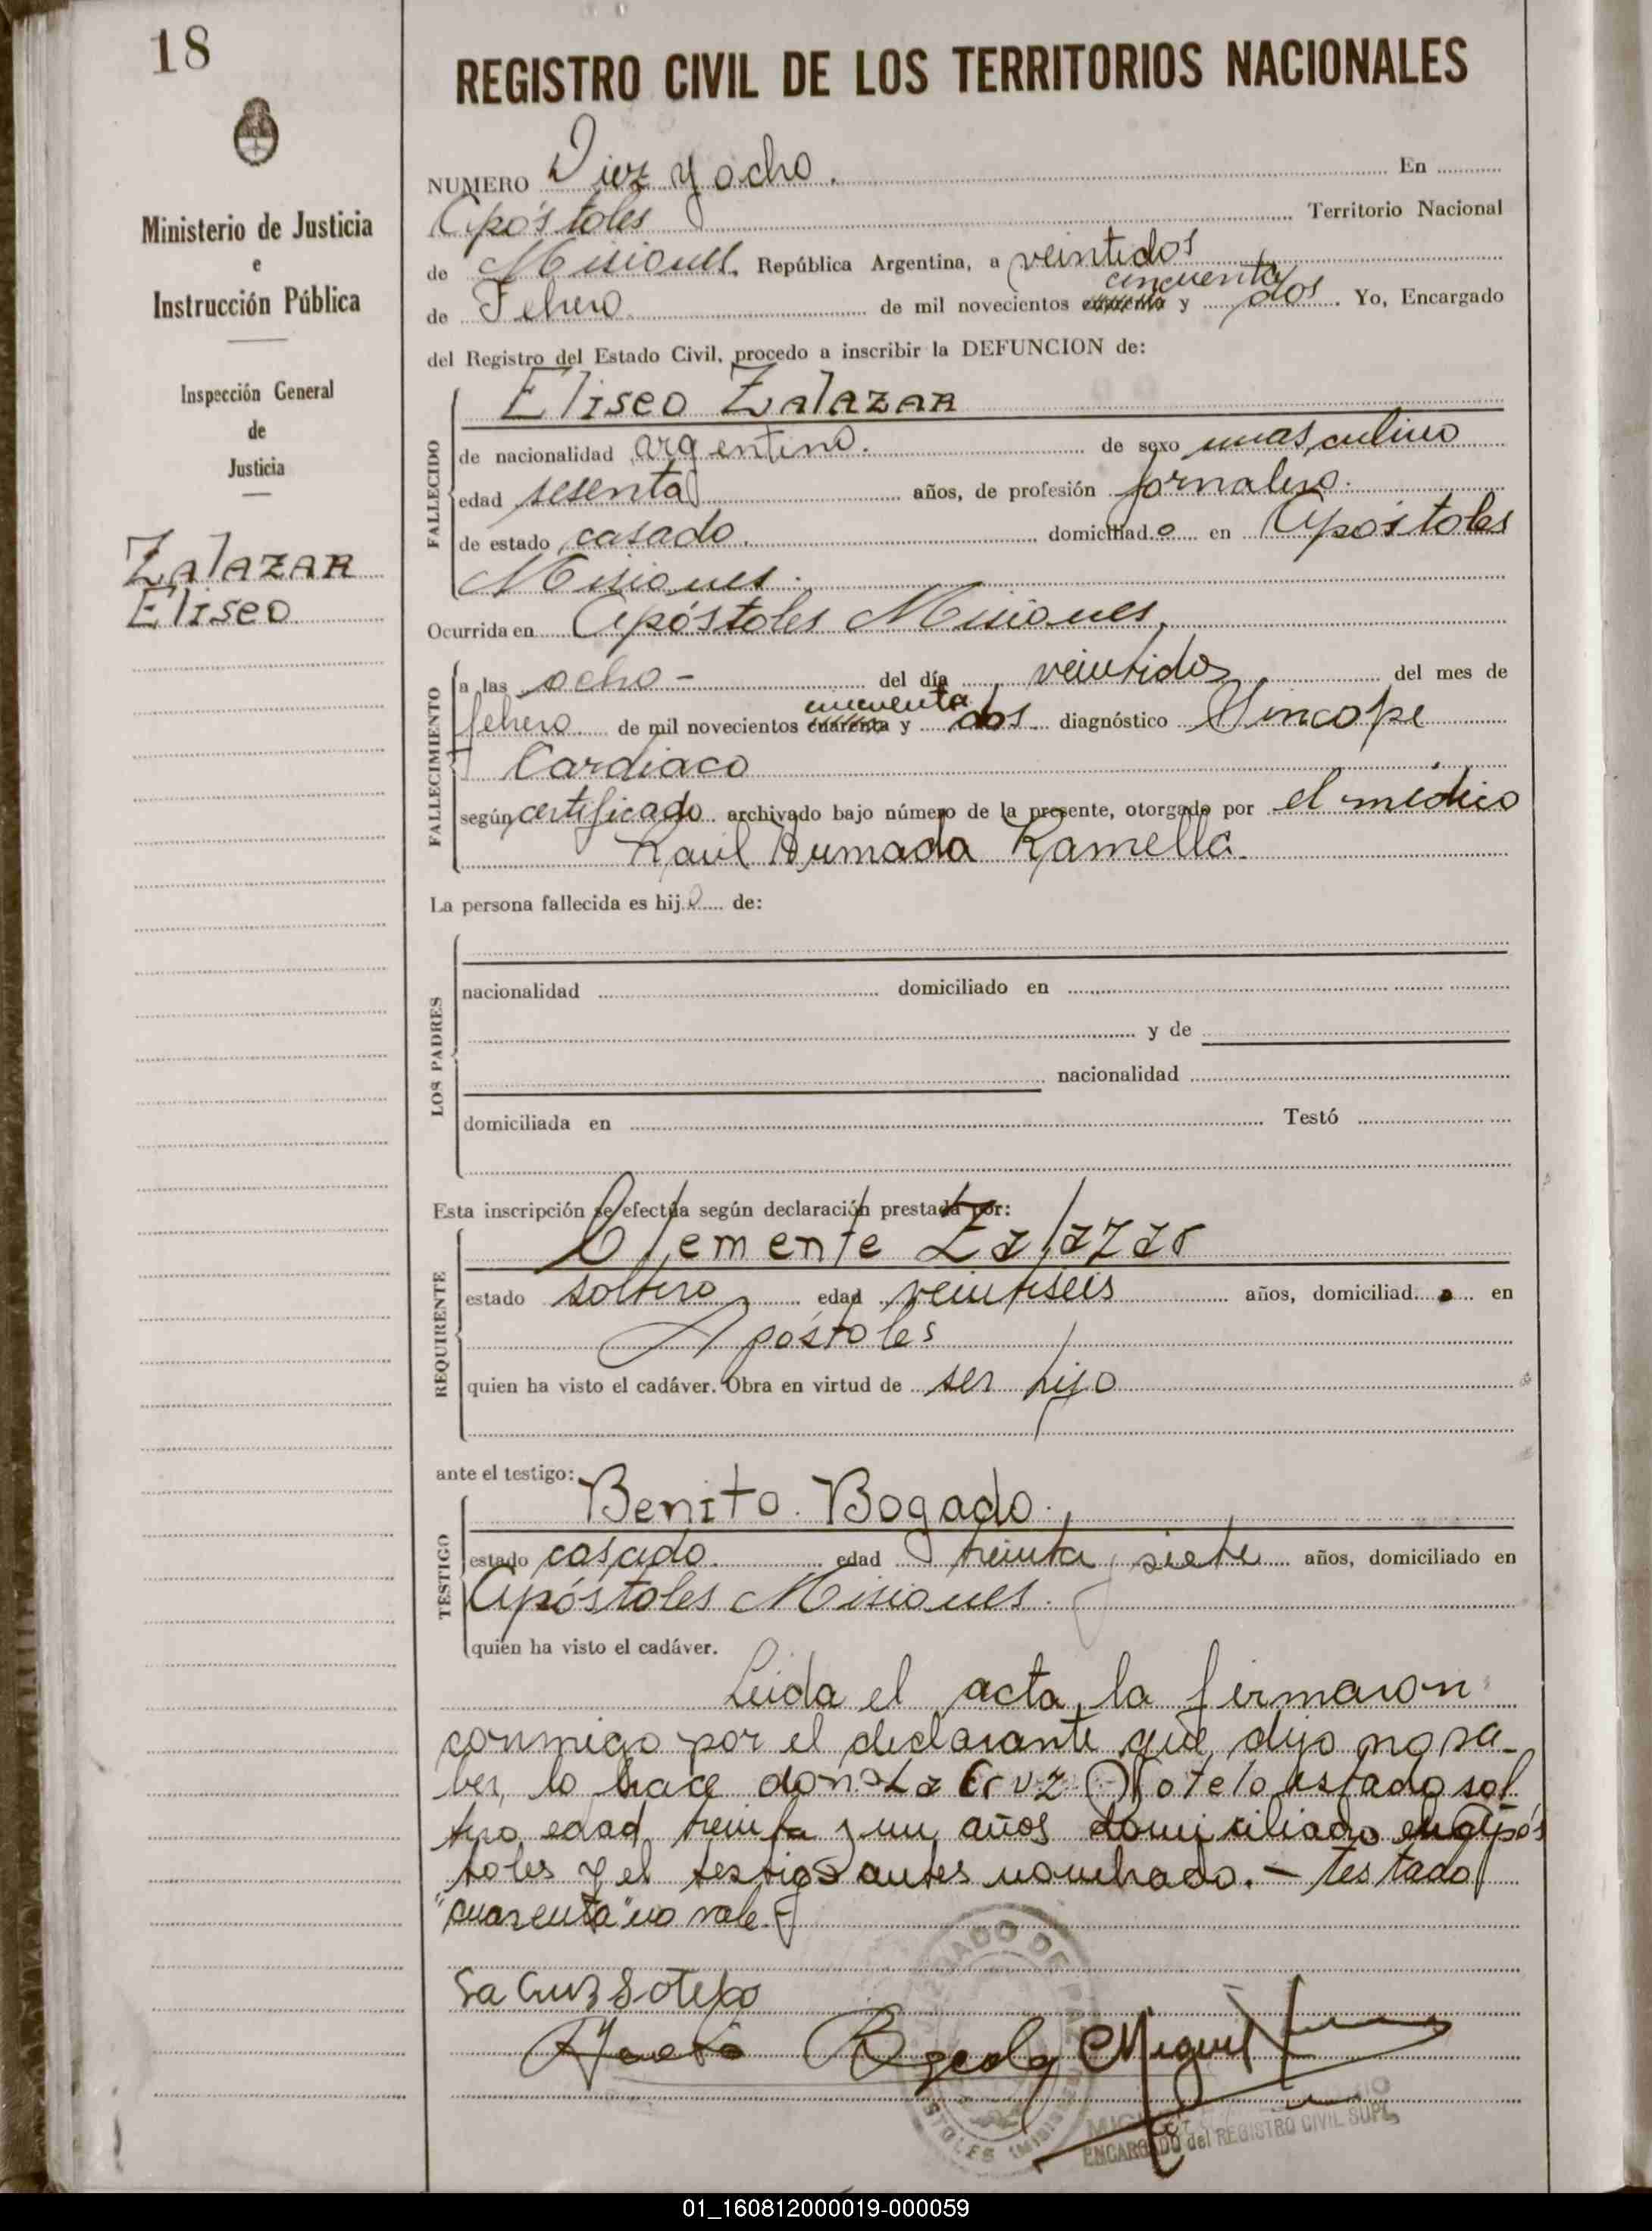 18
Ministerio de Justicia
e
Instrucción Pública
Inspección General
de
Justicia
Zalazar
Eliseo
REGISTRO CIVIL DE LOS TERRITORIOS NACIONALES
NUMERO Diez y ocho. En
Apóstoles Territorio Nacional
de Misiones, República Argentina, a veintidos
cincuenta
de Febrero de mil novecientos cuarenta y dos. Yo, Encargado
del Registro del Estado Civil, procedo a inscribir la DEFUNCION de:
FALLECIDO
Eliseo Zalazar
de nacionalidad argentino. de sexo masculino
edad sesenta años, de profesión jornalero.
de estado casado. domiciliado en Apóstoles
Misiones.
Ocurrida en Apóstoles Misiones,
FALLECIMIENTO
a las ocho- del día veintidos del mes de
cincuenta
febrero de mil novecientos cuarenta y dos diagnóstico Sincope
Cardiaco
según certificado archivado bajo número de la presente, otorgado por el médico
Raul Humada Ramella.
La persona fallecida es hijo de:
LOS PADRES
nacionalidad domiciliado en
y de
nacionalidad
domiciliada en Testó
Esta inscripción se efectúa según declaración prestada por:
REQUIRENTE
Clemente Zalazar
estado soltero edad veintiseis años, domiciliado en
Apóstoles
quien ha visto el cadáver. Obra en virtud de ser hijo
ante el testigo:
TESTIGO
Benito Bogado.
estado casado. edad treinta y siete años, domiciliado en
Apóstoles Misiones.
quien ha visto el cadáver.
Leida el acta, la firmaron
conmigo por el declarante que dijo no sa-
ber, lo hace don La Cruz Sotelo estado sol
tero edad treinta y un años domiciliado en Após
toles y el testigo antes nombrado. - Testado
"cuarenta" no vale.-
La Cruz Sotelo
Miguel
JUZGADO DE PAZ
MISIONES
ENCARGADO del REGISTRO CIVIL SUPL.
01_160812000019-000059